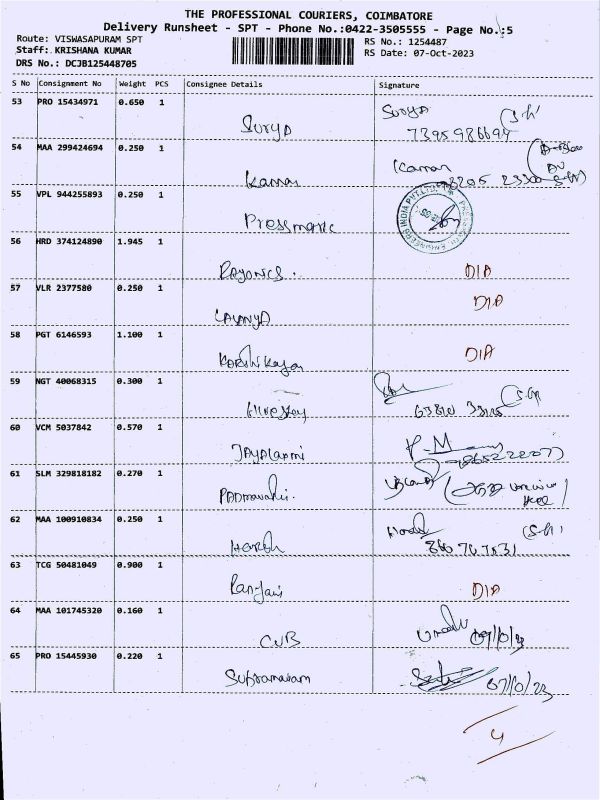 THE PROFESSIONAL COURIERS, COIMBATORE
Delivery Runsheet - SPT - Phone No.:0422-3505555 - Page No.:5
Route: VISWASAPURAM SPT
RS No.: 1254487
Staff: KRISHANA KUMAR
RS Date: 07-Oct-2023
DRS No.: DCJB125448705
S No Consignment No Weight PCS Consignee Details Signature
53 PRO 15434971 0.650 1
Surya Surya
7395986694
54 MAA 299424694 0.250 1
Kannan Kannan
55 VPL 944255893 0.250 1
Pressmatic
56 HRD 374124890 1.945 1
Rayonics. D/A
57 VLR 2377580 0.250 1
Lavanya D/A
58 PGT 6146593 1.100 1
D/A
59 NGT 40068315 0.300 1
60 VCM 5037842 0.570 1
Jayalaxmi P.M
61 SLM 329818182 0.270 1
Padmavathi.
62 MAA 100910834 0.250 1
Harsh
63 TCG 50481049 0.900 1
Ranjani D/A
64 MAA 101745320 0.160 1
CUB 07/10/23
65 PRO 15445930 0.220 1
07/10/23
4